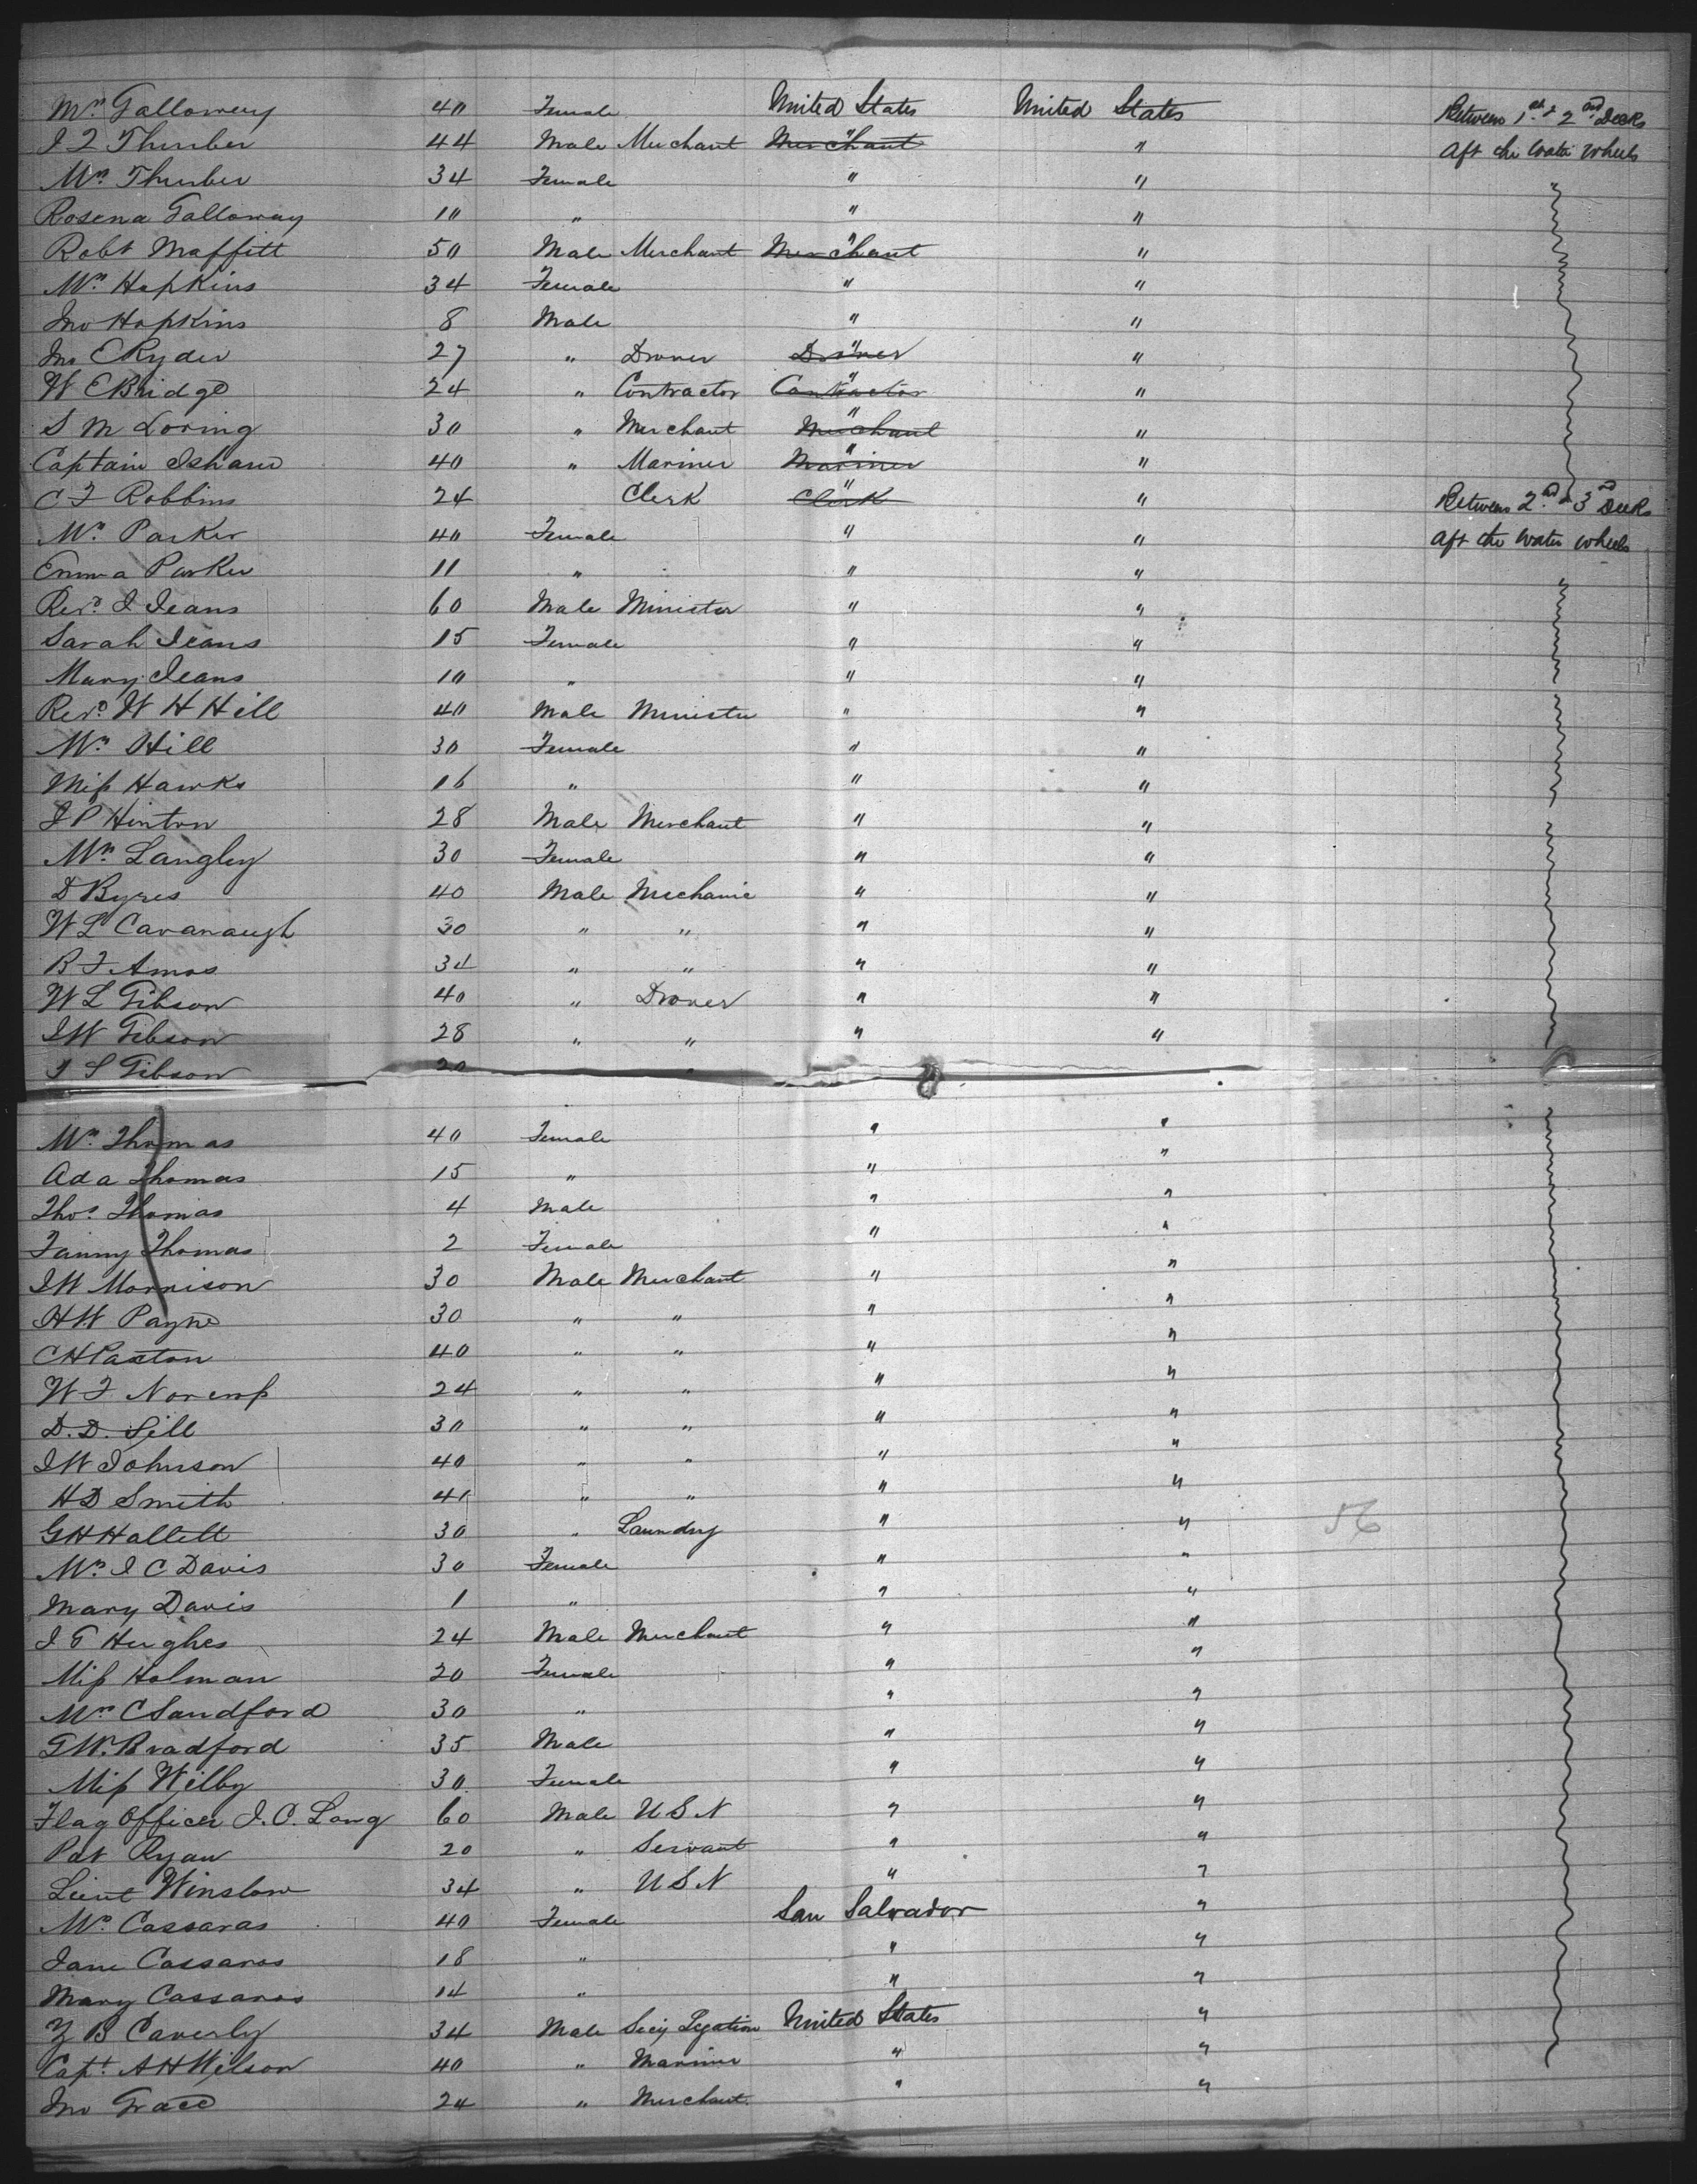 Mrs Galloway 40 Female United States United States Between 1st & 2nd Decks
I F Thurber 44 Male Merchant Merchant " " aft the water wheels
Mrs Thurber 34 Female " "
Rosena Galloway 10 " " "
Robt Maffitt 50 Male Merchant Merchant " "
Mrs Hopkins 34 Female " "
Jno Hopkins 8 Male " "
Jno E Ryder 27 " Drover Drover " "
W E Bridge 24 " Contractor Contractor " "
S M Loring 30 " Merchant Merchant " "
Captain Isham 40 " Mariner Mariner " "
C F Robbins 24 Clerk Clerk " " Between 2nd & 3rd Decks
Mrs Parker 40 Female " " aft the water wheels
Emma Parker 11 " " "
Revd I Jeans 60 Male Minister " "
Sarah Jeans 15 Female " "
Mary Jeans 10 " " "
Revd W H Hill 40 Male Minister " "
Mrs Hill 30 Female " "
Miss Hawks 16 " " "
J P Hinton 28 Male Merchant " "
Mrs Langley 30 Female " "
D Byres 40 Male Mechanic " "
W L Cavanaugh 30 " " " "
B F Amos 34 " " " "
W L Gibson 40 " Drover " "
I W Gibson 28 " " " "
S Gibson 20
Mrs Thomas 40 Female " "
Ada Thomas 15 " " "
Thos Thomas 4 Male " "
Fanny Thomas 2 Female " "
J W Morrison 30 Male Merchant " "
H W Payne 30 " " " "
C H Paxton 40 " " " "
W F 24 " " " "
D. D. Sill 30 " " " "
J W Johnson 40 " " " "
H D Smith 40 " " " "
G H Hallett 30 " Laundry " " 56
Mrs J C Davis 30 Female " "
Mary Davis 1 " " "
J G Hughes 24 Male Merchant " "
Miss Holman 20 Female " "
Mrs C Sandford 30 " " "
G W. Bradford 35 Male " "
Miss Wilby 30 Female " "
Flag Officer J. C. Long 60 Male U S N " "
Pat Ryan 20 " Servant " "
Lieut Winslow 34 " U S N " "
Mrs Cassaras 40 Female San Salvador "
Jane Cassaras 18 " " "
Mary Cassaras 14 " " "
Z B Caverly 34 Male Secy Legation United States "
Capt. A H Wilson 40 " Mariner " "
Jno Grace 24 " Merchant " "